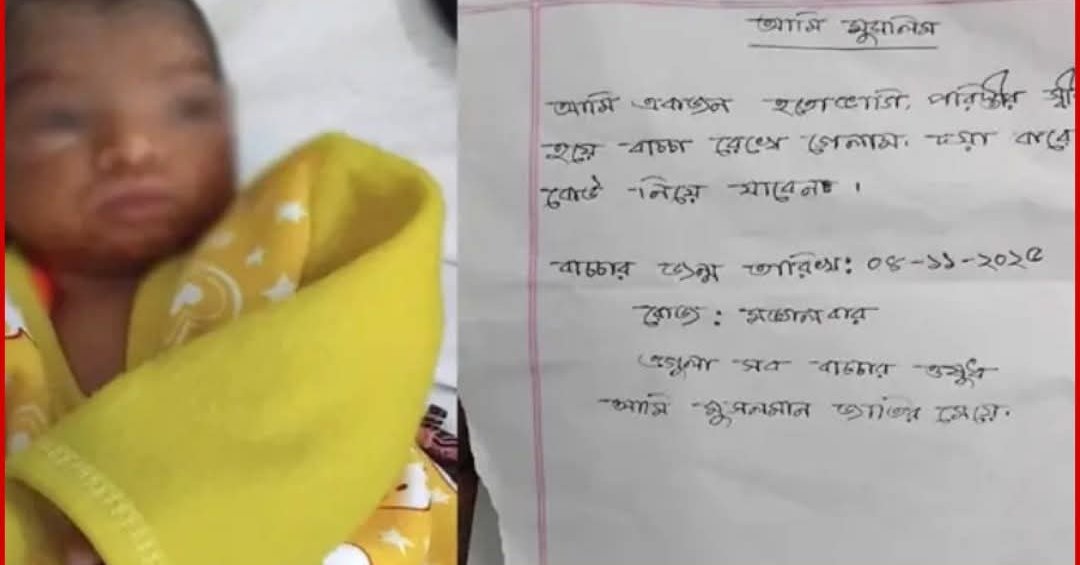 আমি মুসলিম
আমি একজন হতোভাগি, পরিস্থীর স্বী
হয়ে বাচ্চা রেখে গেলাম. দয়া করে
কেউ নিয়ে যাবেন।
বাচ্চার জন্ম তারিখ: ০৪-১১-২০২৫
রোজ : মঙ্গলবার
এগুলা সব বাচ্চার ওষুধ
আমি মুসলমান জাতির মেয়ে.